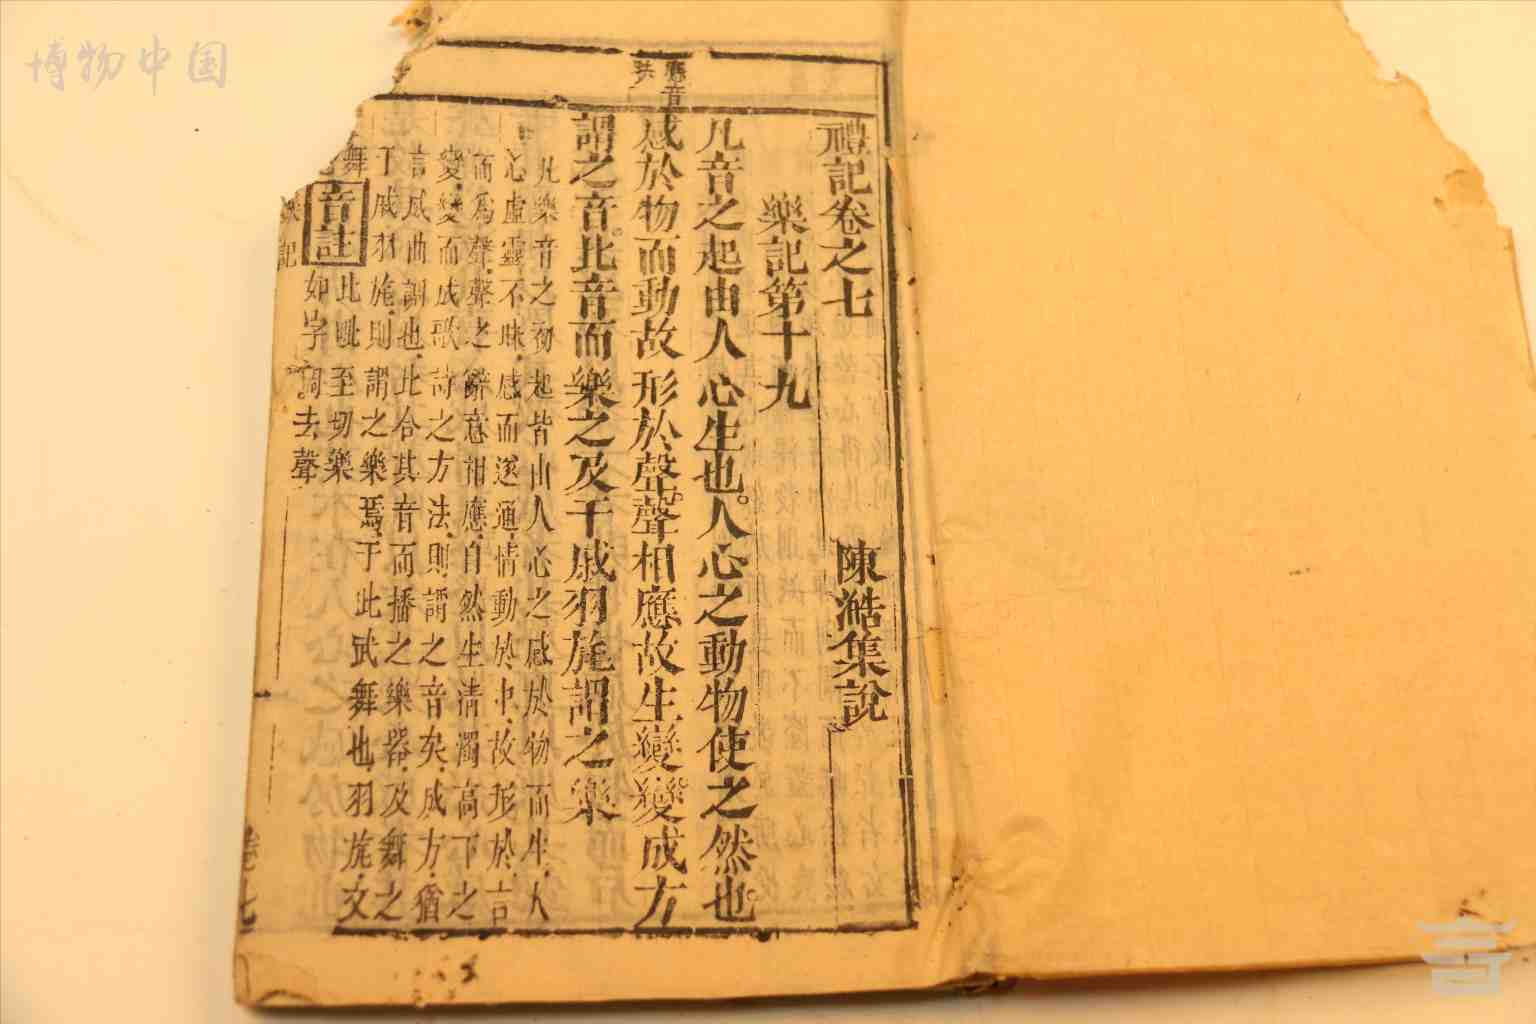 博物中国
應音
禮記卷之七
陳澔集說
樂記第十九
凡音之起由人心生也。人心之動物使之然也。
感於物而動故形於聲。聲相應故生變。變成方
謂之音。比音而樂之及干戚羽旄謂之樂
凡樂音之初起皆由人心之感於物而生人
心虛靈不昧感而遂通情動於中故形於言
而為聲聲之辭意相應自然生清濁高下之
變變而成歌詩之方法則謂之音矣成方猶
言成曲調也比合其音而播之樂器及舞之
干戚羽旄則謂之樂焉干戚武舞也羽旄文
舞
音註
比毗至切樂
如字調去聲
記
卷七
言